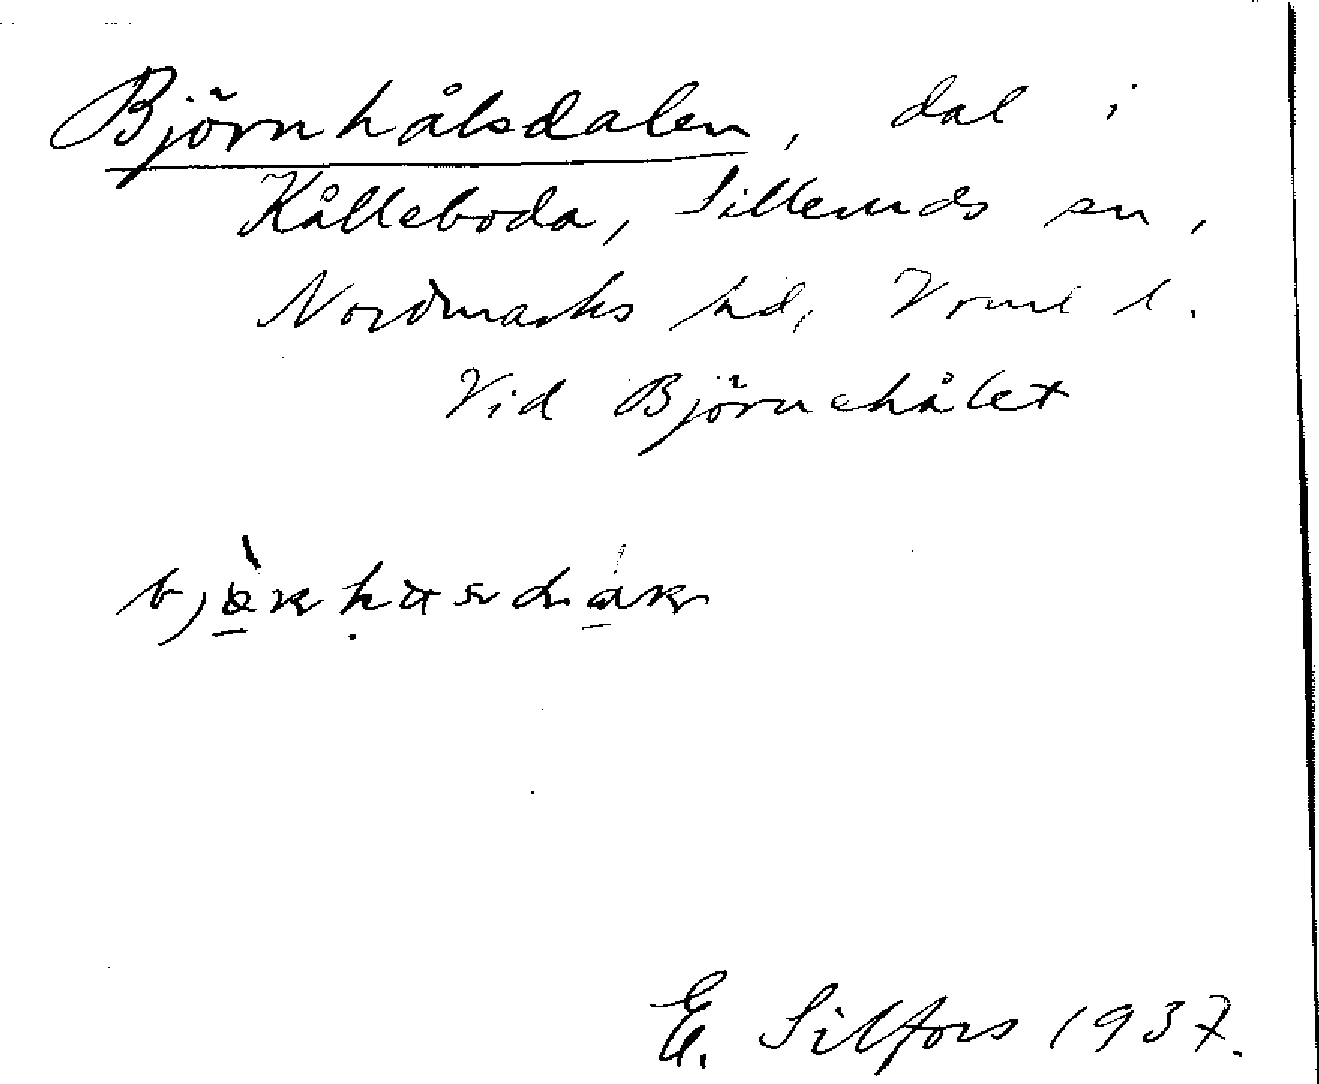 Björnhålsdalen, dal i
Kålleboda, Silleruds sn,
Nordmarks hd, Vrml l.
Vid Björnehålet
E. Silfors 1937.